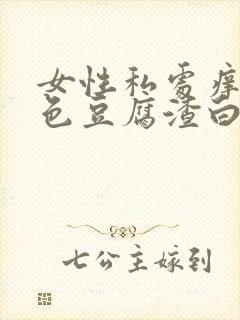 女性私處痒
色豆腐渣白
七公主嫁到